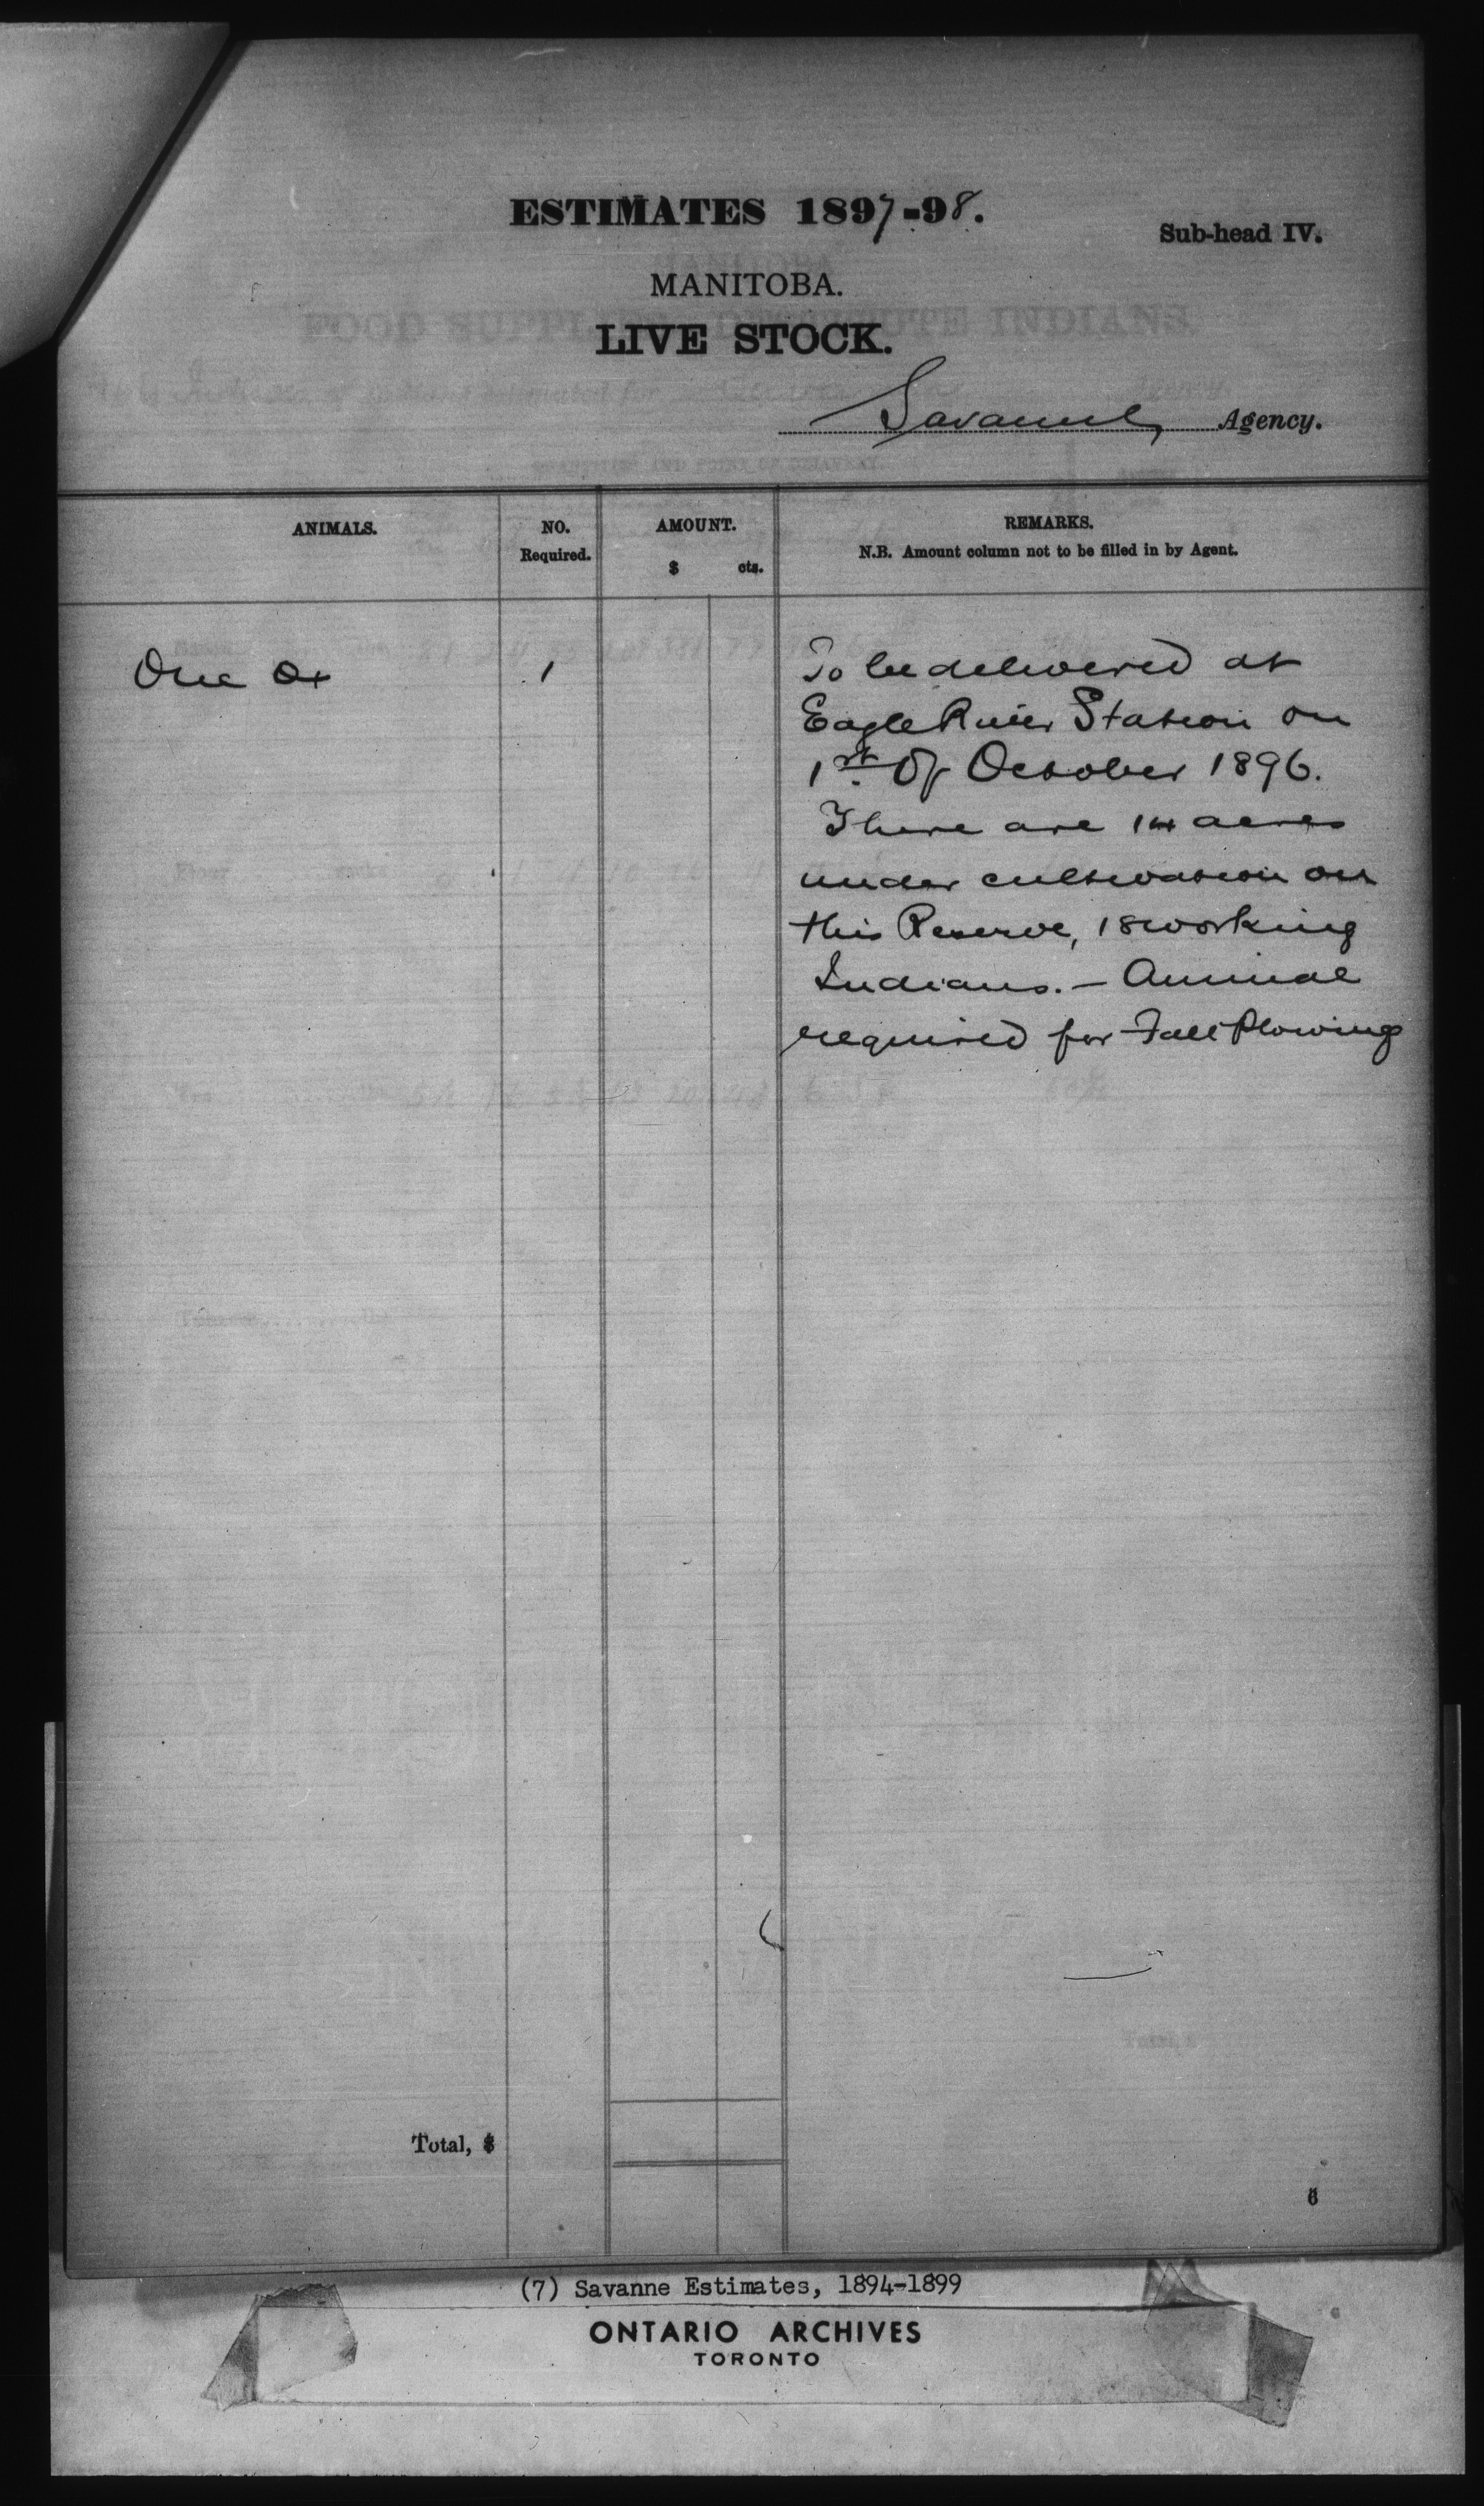 ESTIMATES 1897-98.
Sub-head IV.
MANITOBA.
LIVE STOCK.
Savanne Agency.
ANIMALS.
NO.
Required.
AMOUNT.
$ cts.
REMARKS.
N.B. Amount column not to be filled in by Agent.
One Ox 1 To be delivered at
Eagle River Station on
1st. Of October 1896.
There are 14 acres
under cultivation on
this Reserve, 18 working
Indians. - Animal
required for Fall Plowing
Total, $
6
(7) Savanne Estimates, 1894-1899
ONTARIO ARCHIVES
TORONTO